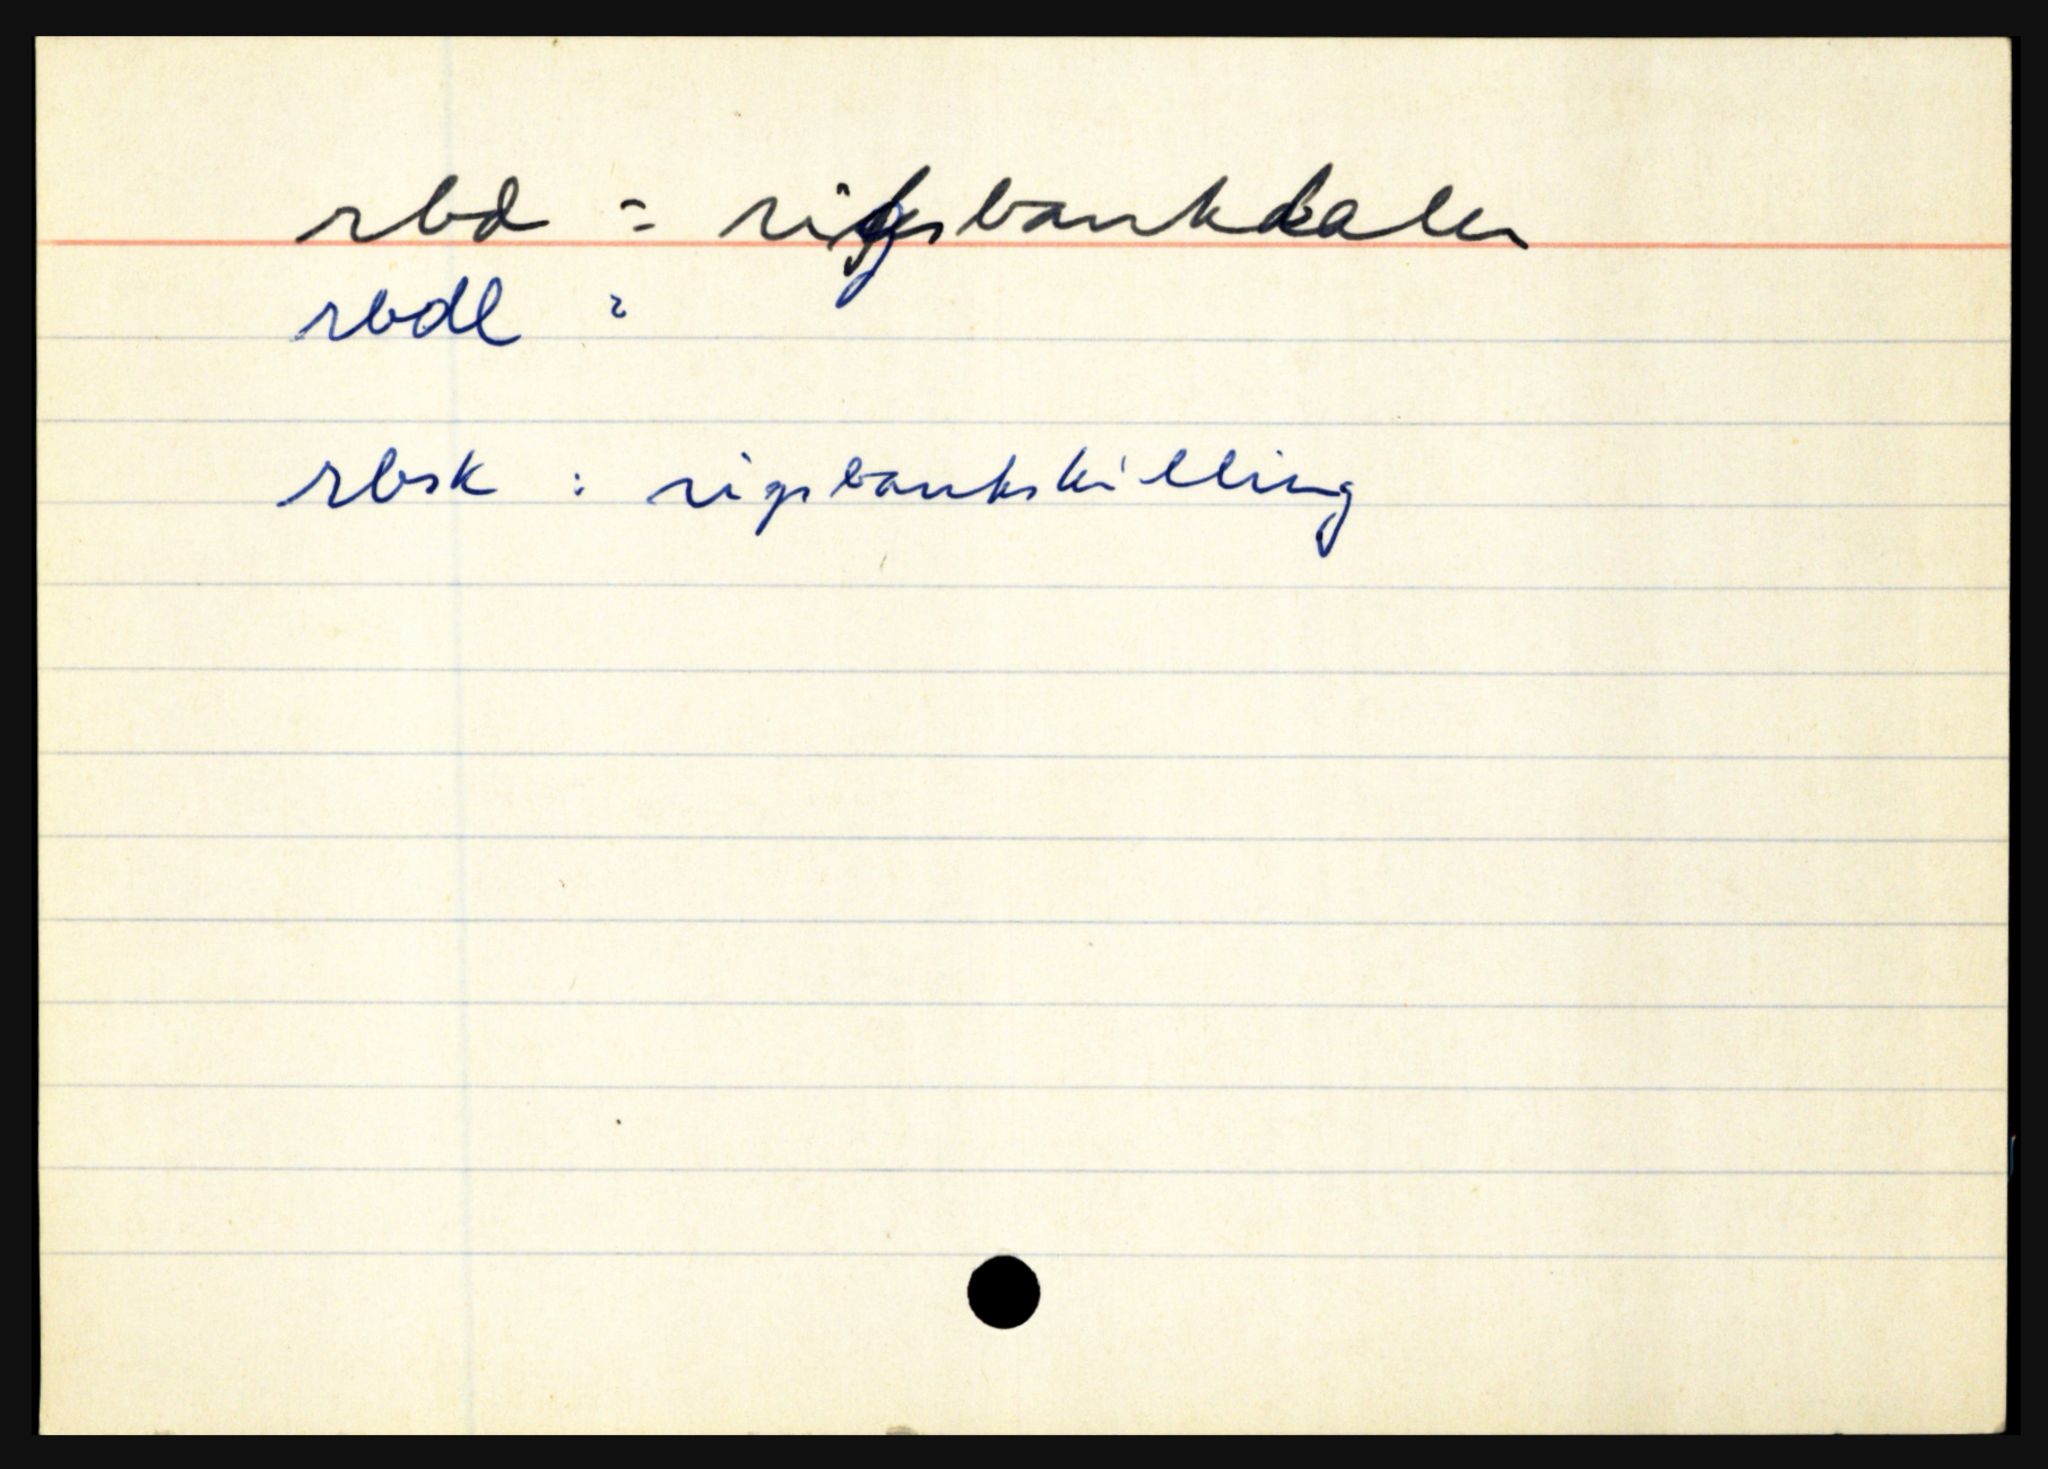 rbd = rigsbankdaler
rbdl =
rbsk : rigsbankskilling